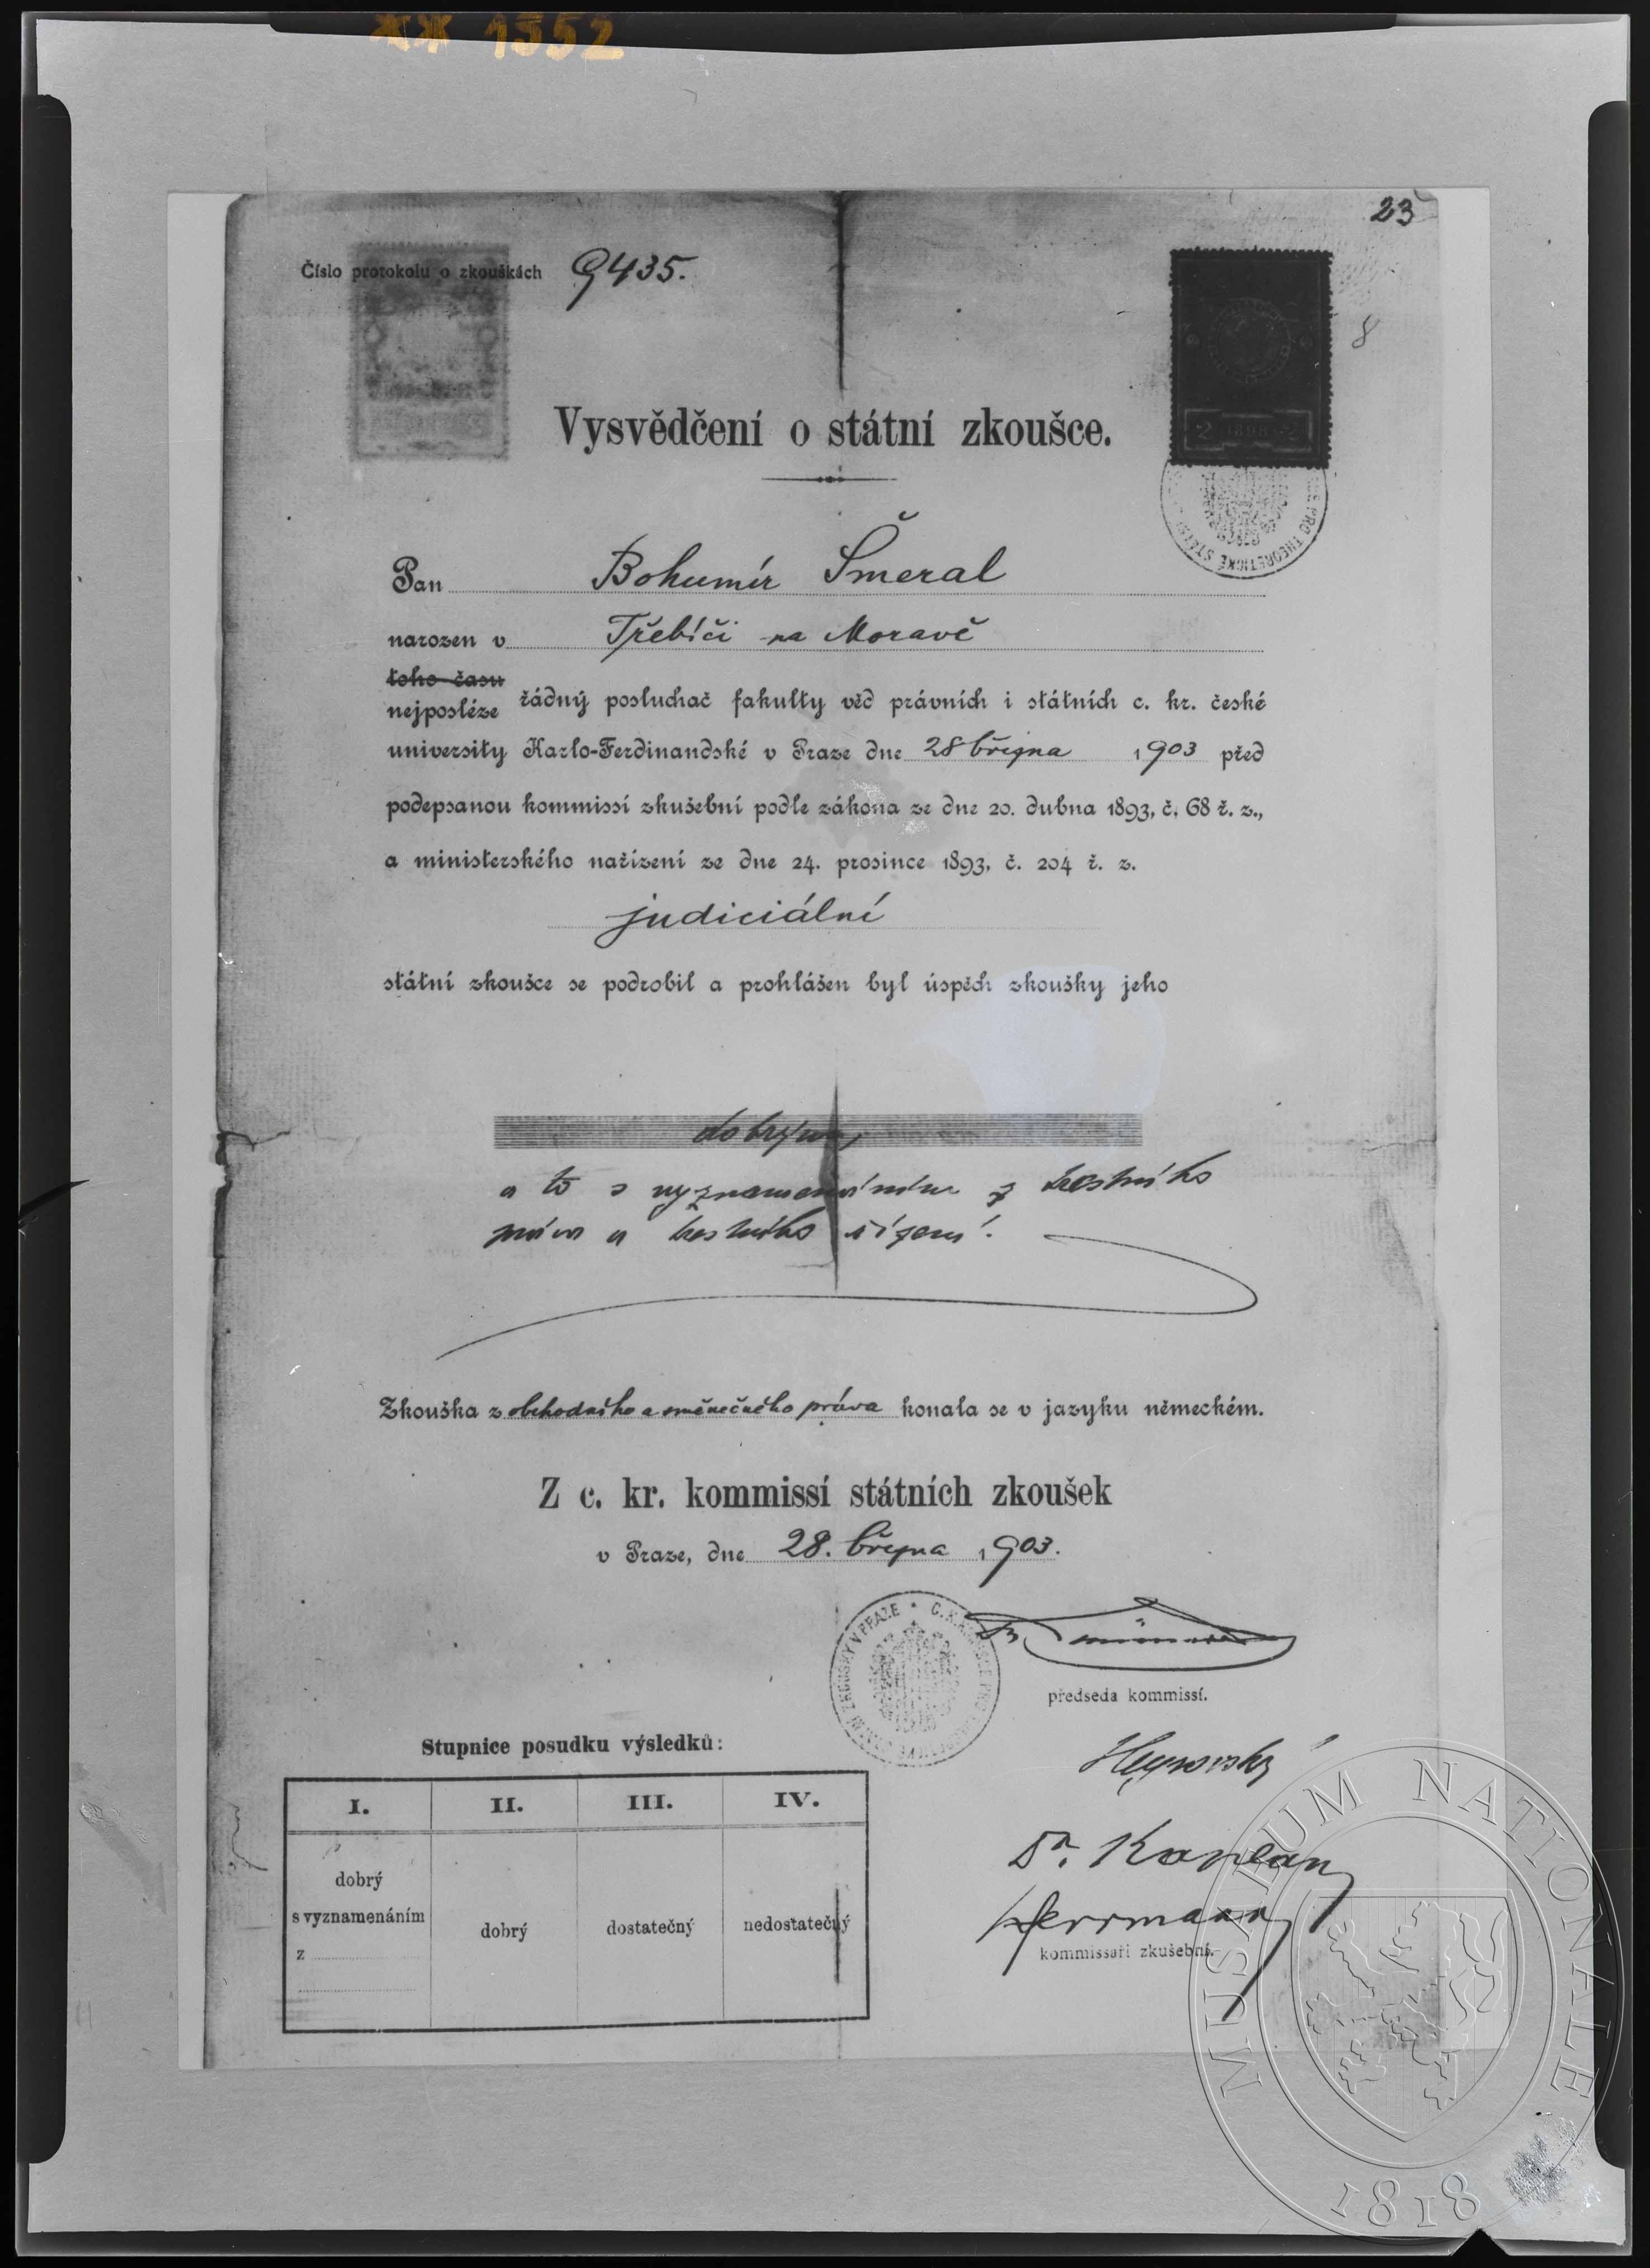 ** 1352
23
Číslo protokolu o zkouškách 9435.
8
2 1898 2
Vysvědčení o státní zkoušce.
PRO THEORETICKÉ STÁTN
Pan Bohumír Šmeral
narozen v Třebíči na Moravě
toho času
nejposléze řádný posluchač fakulty věd právních i státních c. kr. české
university Karlo-Ferdinandské v Praze dne 28 března 1903 před
podepsanou kommissí zkušební podle zákona ze dne 20. dubna 1893, č. 68 ř. z.,
a ministerského nařízení ze dne 24. prosince 1893, č. 204 ř. z.
judiciální
státní zkoušce se podrobil a prohlášen byl úspěch zkoušky jeho
dobrým,
a to s vyznamenáním z trestního
práva a trestního řízení.
Zkouška z obchodního a směnečného práva konala se v jazyku německém.
Z c. kr. kommissí státních zkoušek
v Praze, dne 28. března 1903.
předseda kommissí.
Heyrovský
Dr. Kaplan
Herrmann
kommissaři zkušební.
Stupnice posudku výsledků:
I. II. III. IV.
dobrý
s vyznamenáním
z
dobrý
dostatečný
nedostatečný
MUSAEUM NATIONALE
1818